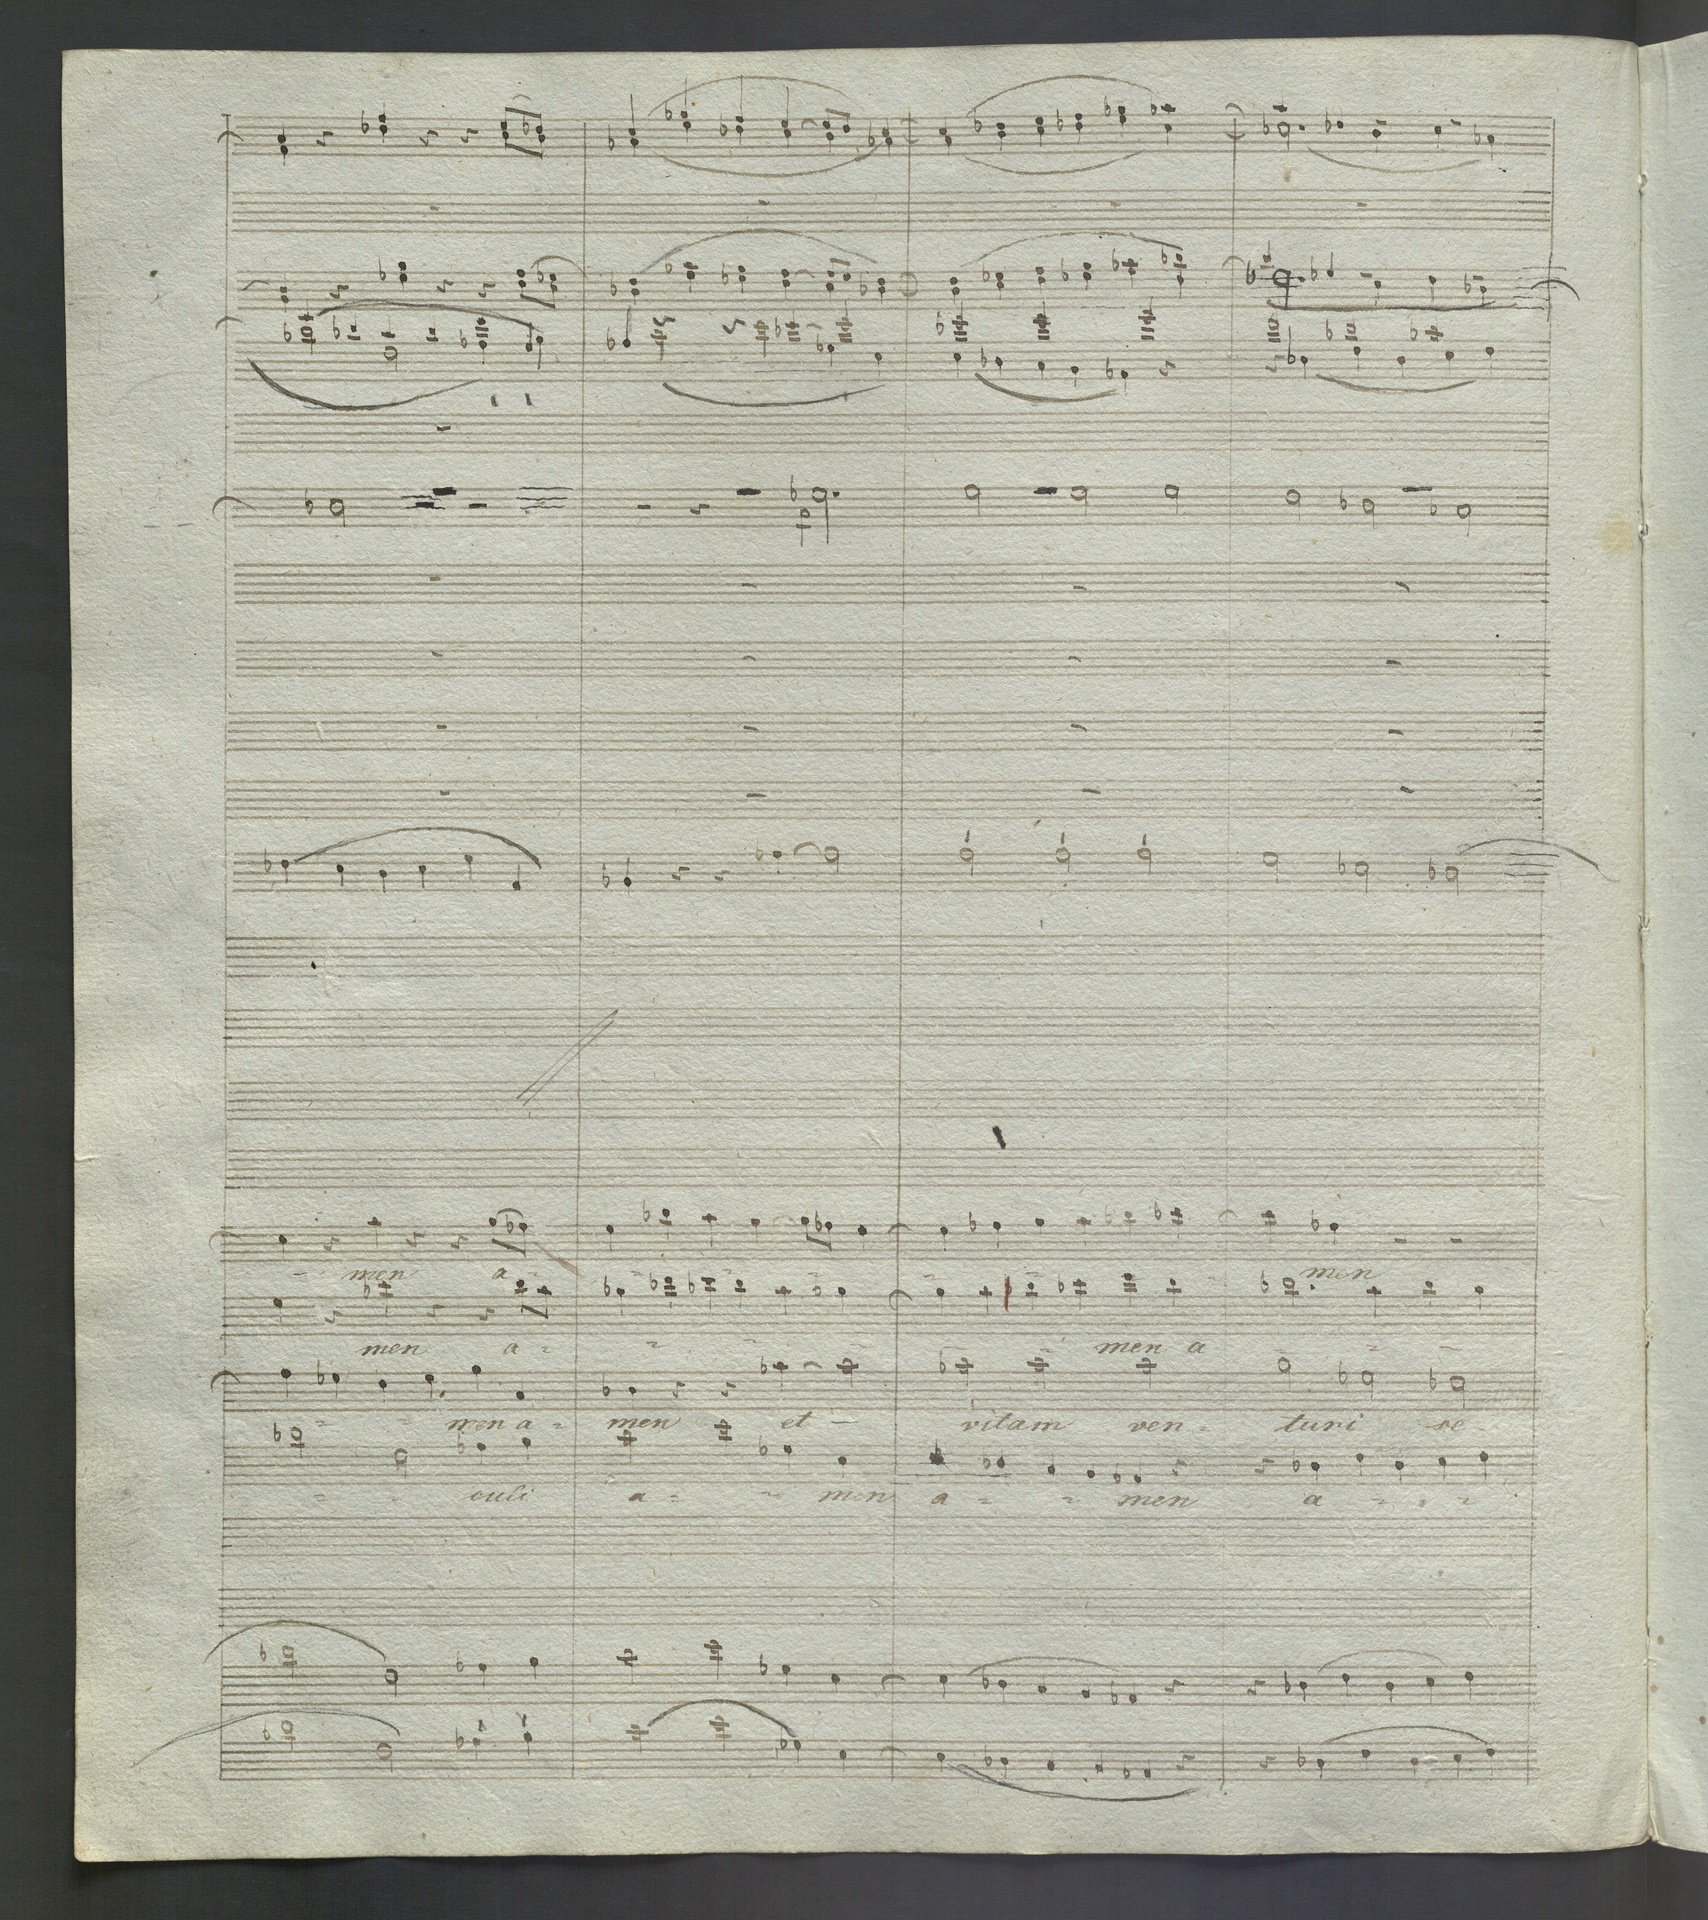 men a -
men
men a - - - men a - - -
- - men a - men et - vitam ven - turi se -
- - - culi a - - men a - - men a - - -